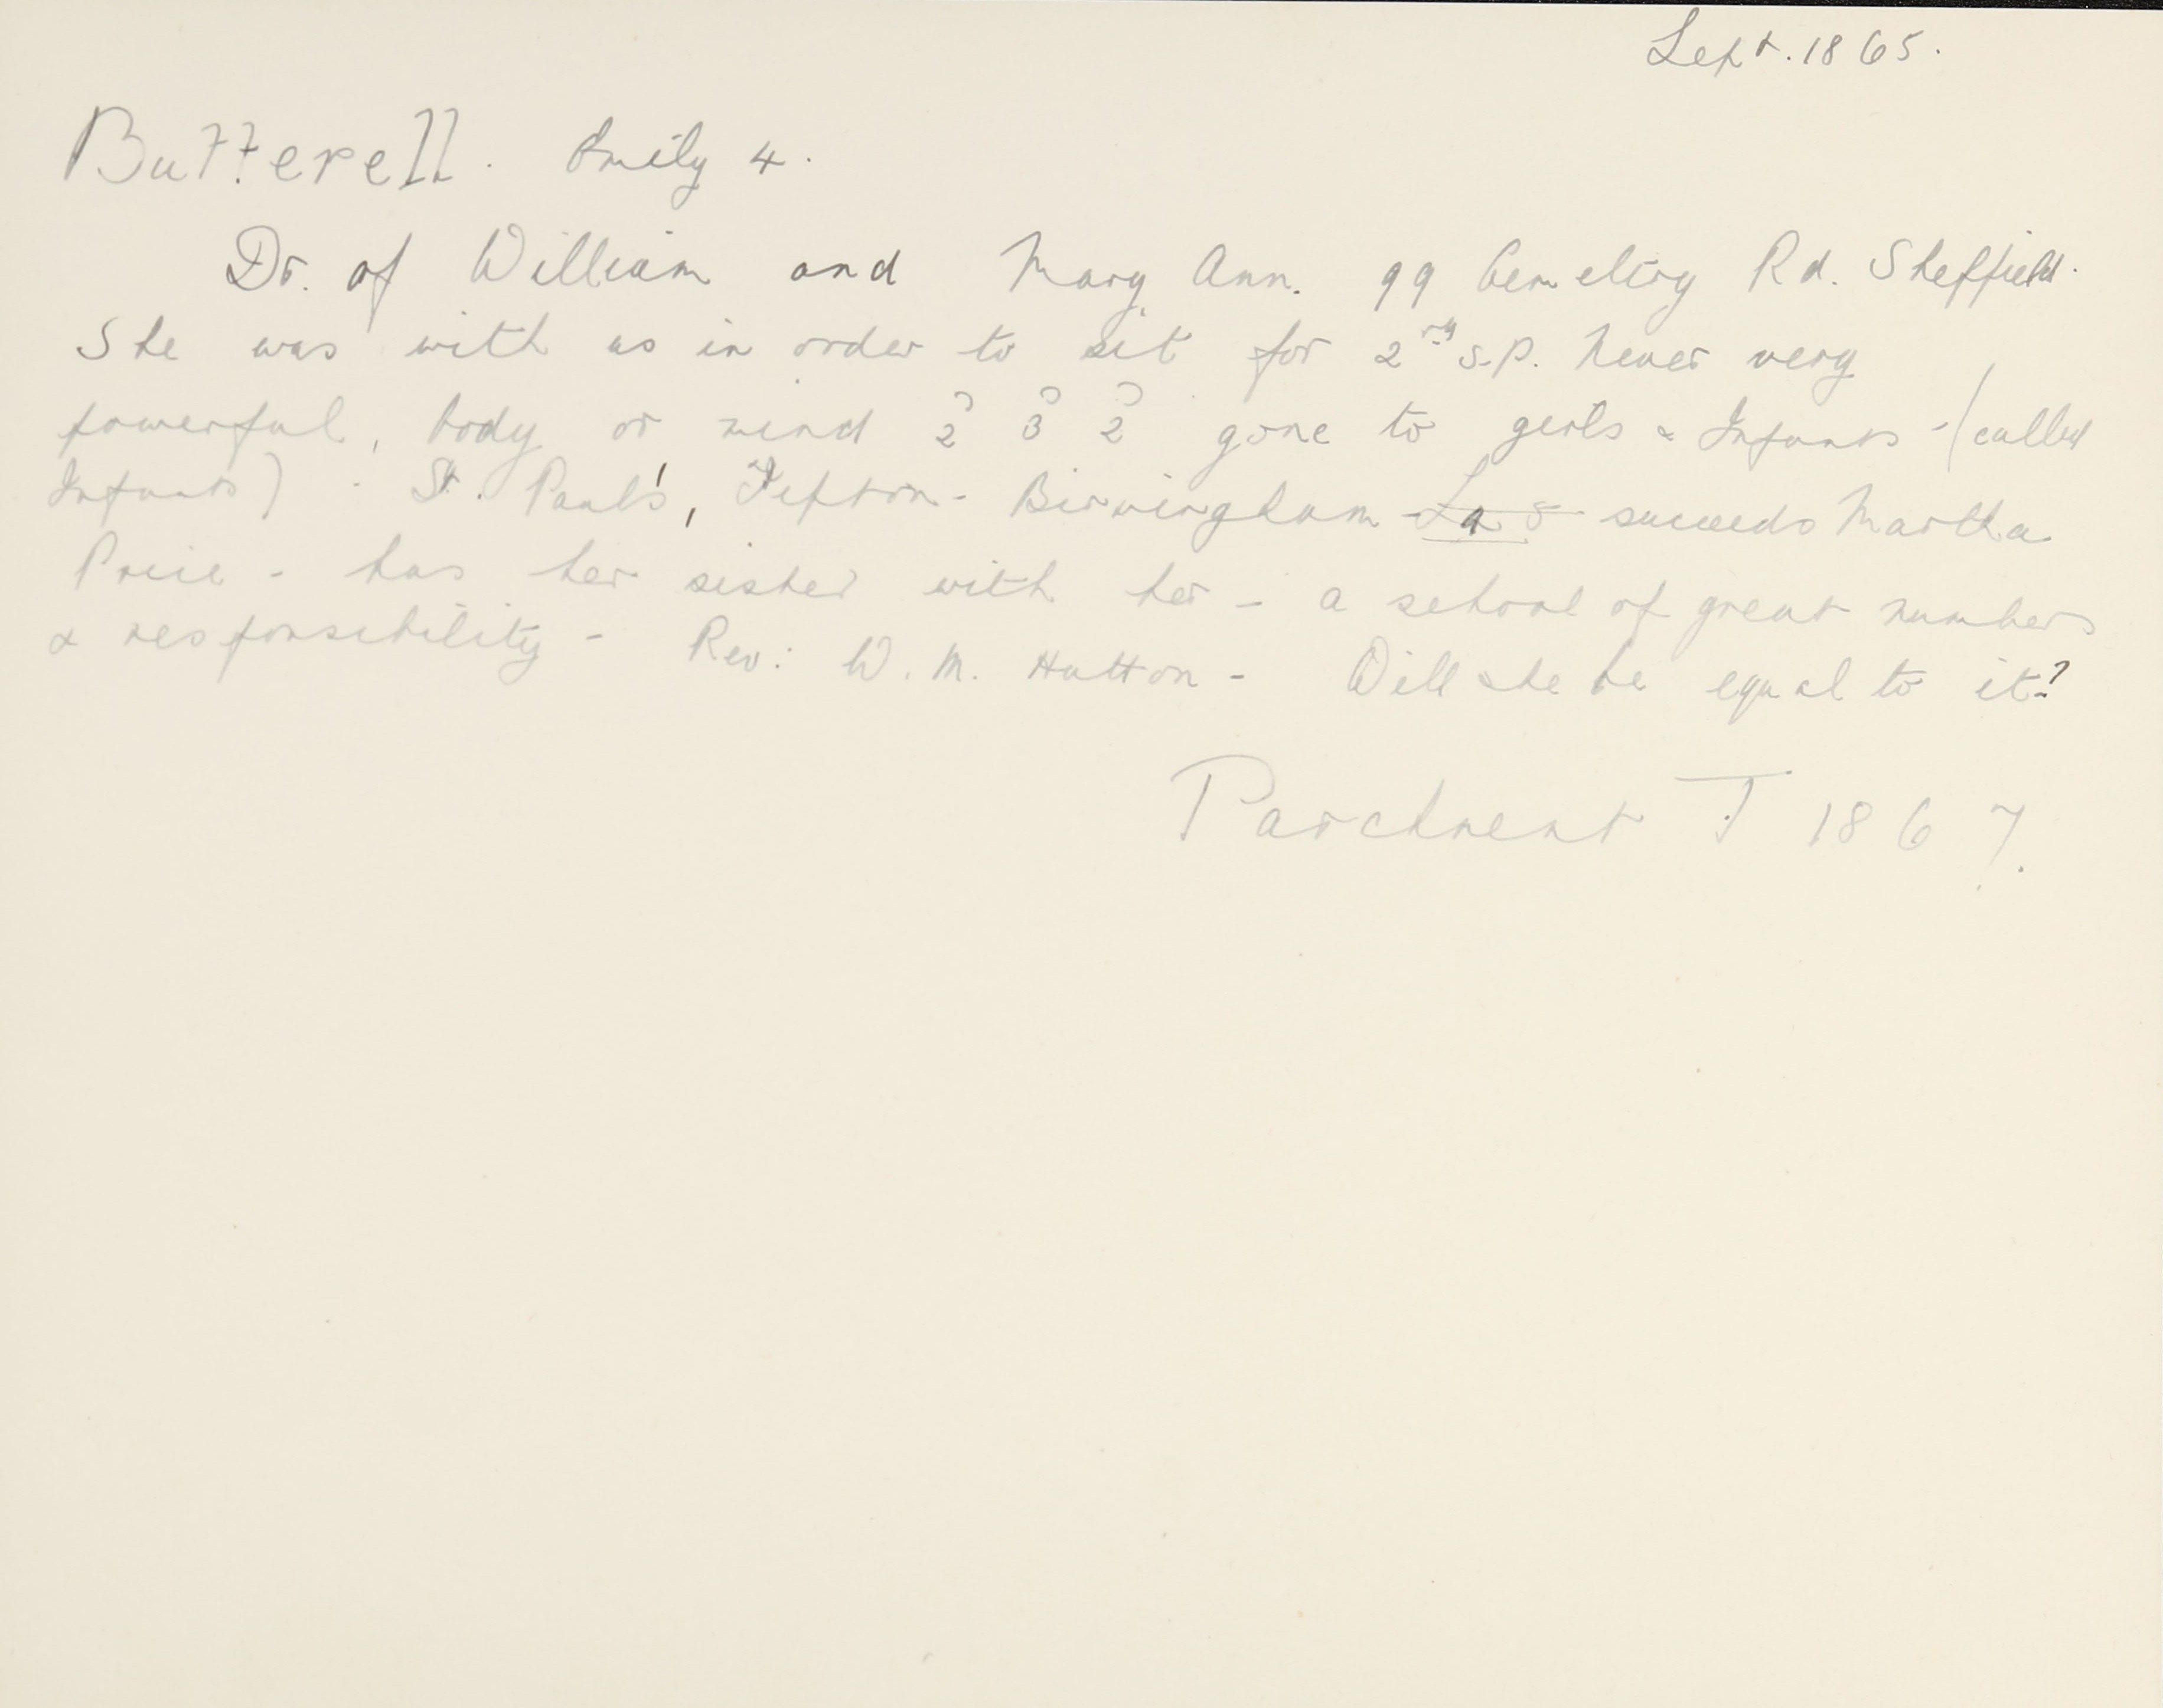 Sept. 1865.
Butterell. Emily 4.
Dr. of William and Mary Ann. 99 Cemetery Rd. Sheffield.
She was with us in order to sit for 2nd S.P. Never very
powerful, body or mind 2 3 2 gone to girls & Infants - (called
Infants) - St. Paul's, Tipton - Birmingham - succeeds Martha
Price - has her sister with her - a school of great numbers
& responsibility - Rev: W. M. Hutton - Will she be equal to it?
Parchment T 1867.